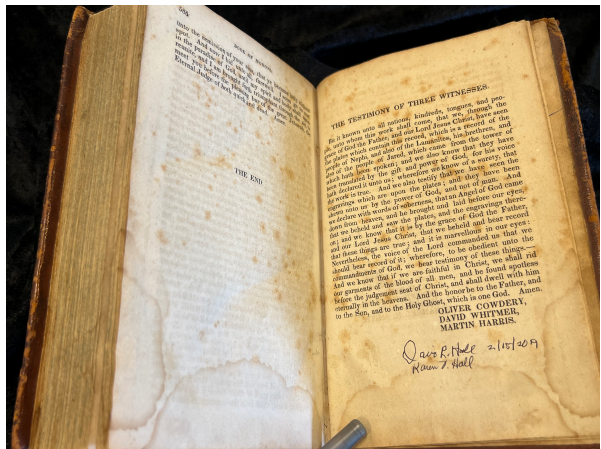 588
BOOK OF MORONI.
THE END.
THE TESTIMONY OF THREE WITNESSES.
Be it known unto all nations, kindreds, tongues, and peo-
ple, unto whom this work shall come, that we, through the
grace of God the Father, and our Lord Jesus Christ, have seen
the plates which contain this record, which is a record of the
people of Nephi, and also of the Lamanites, his brethren, and
also of the people of Jared, which came from the tower of
which hath been spoken; and we also know that they have
been translated by the gift and power of God, for his voice
hath declared it unto us; wherefore we know of a surety, that
the work is true. And we also testify that we have seen the
engravings which are upon the plates; and they have been
shown unto us by the power of God, and not of man. And
we declare with words of soberness, that an Angel of God came
down from heaven, and he brought and laid before our eyes,
that we beheld and saw the plates, and the engravings there-
on; and we know that it is by the grace of God the Father,
and our Lord Jesus Christ, that we beheld and bear record
that these things are true; and it is marvellous in our eyes:
Nevertheless, the voice of the Lord commanded us that we
should bear record of it; wherefore, to be obedient unto the
commandments of God, we bear testimony of these things.—
And we know that if we are faithful in Christ, we shall rid
our garments of the blood of all men, and be found spotless
before the judgement seat of Christ, and shall dwell with him
eternally in the heavens. And the honor be to the Father, and
to the Son, and to the Holy Ghost, which is one God. Amen.
OLIVER COWDERY,
DAVID WHITMER,
MARTIN HARRIS.
Dave L. Hall 2/15/2019
Karen T. Hall